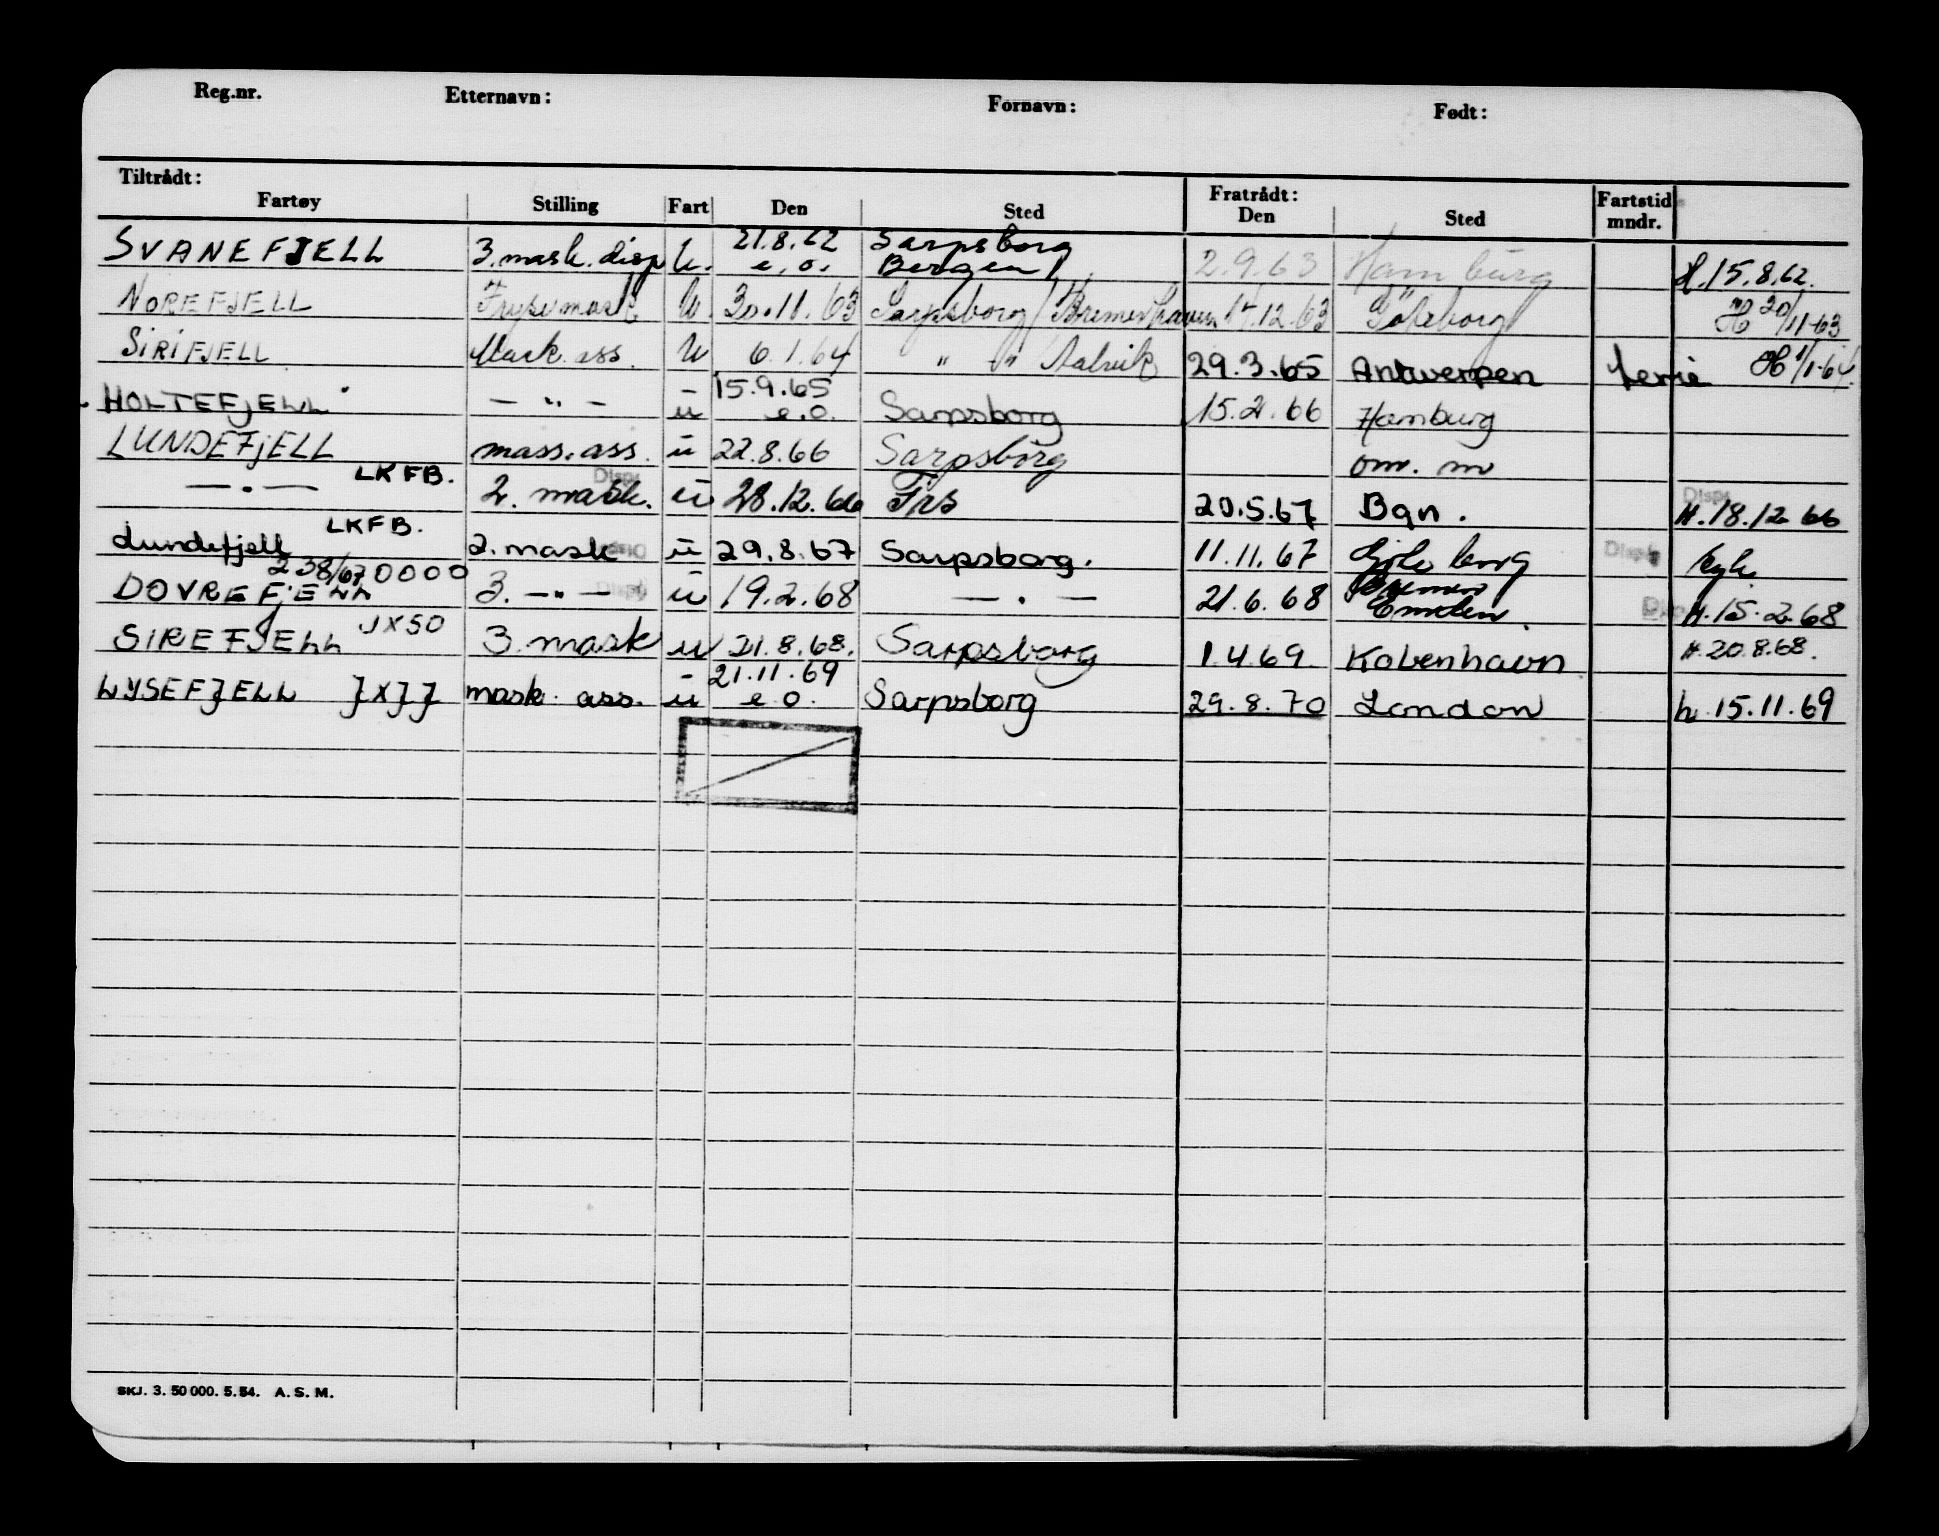 Reg.nr. Etternavn: Fornavn: Født:
Tiltrådt: Fratrådt:
Fartøy Stilling Fart Den Sted Den Sted Fartstid mndr.
SVANEFJELL 3. mask. disp U. 21.8.62 e.o. Sarpsborg Bergen 2.9.63 Hamburg H. 15.8.62.
NOREFJELL Frysemask U. 30.11.63 Sarpsborg/Bremerhaven 17.12.63 Göteborg H 20/11-63
SIRIFJELL Mask. ass. U 6.1.64 " -"- Aalvik 29.3.65 Antwerpen ferie H 1/1-64.
HOLTEFJELL — " — u 15.9.65 e.o. Sarpsborg 15.2.66 Hamburg
LUNDEFJELL mass. ass. u 22.8.66 Sarpsborg om. m
— . — LKFB. 2. mask. Disp u 28.12.66 Frs 20.5.67 Bgn. Disp H. 18.12 66
Lundefjell LKFB. 2. mask u 29.8.67 Sarpsborg. 11.11.67 Göteborg Disp syk.
238/67 0000
DOVREFJELL 3. — " — u 19.2.68 — . — 21.6.68 Emden. H. 15.2.68
SIREFJELL JX50 3. mask u 21.8.68. Sarpsborg 1.4.69. København H. 20.8.68.
LYSEFJELL JXJJ mask. ass. u 21.11.69 e.o. Sarpsborg 29.8.70 London h. 15.11.69
SKJ. 3. 50 000. 5. 54. A. S. M.